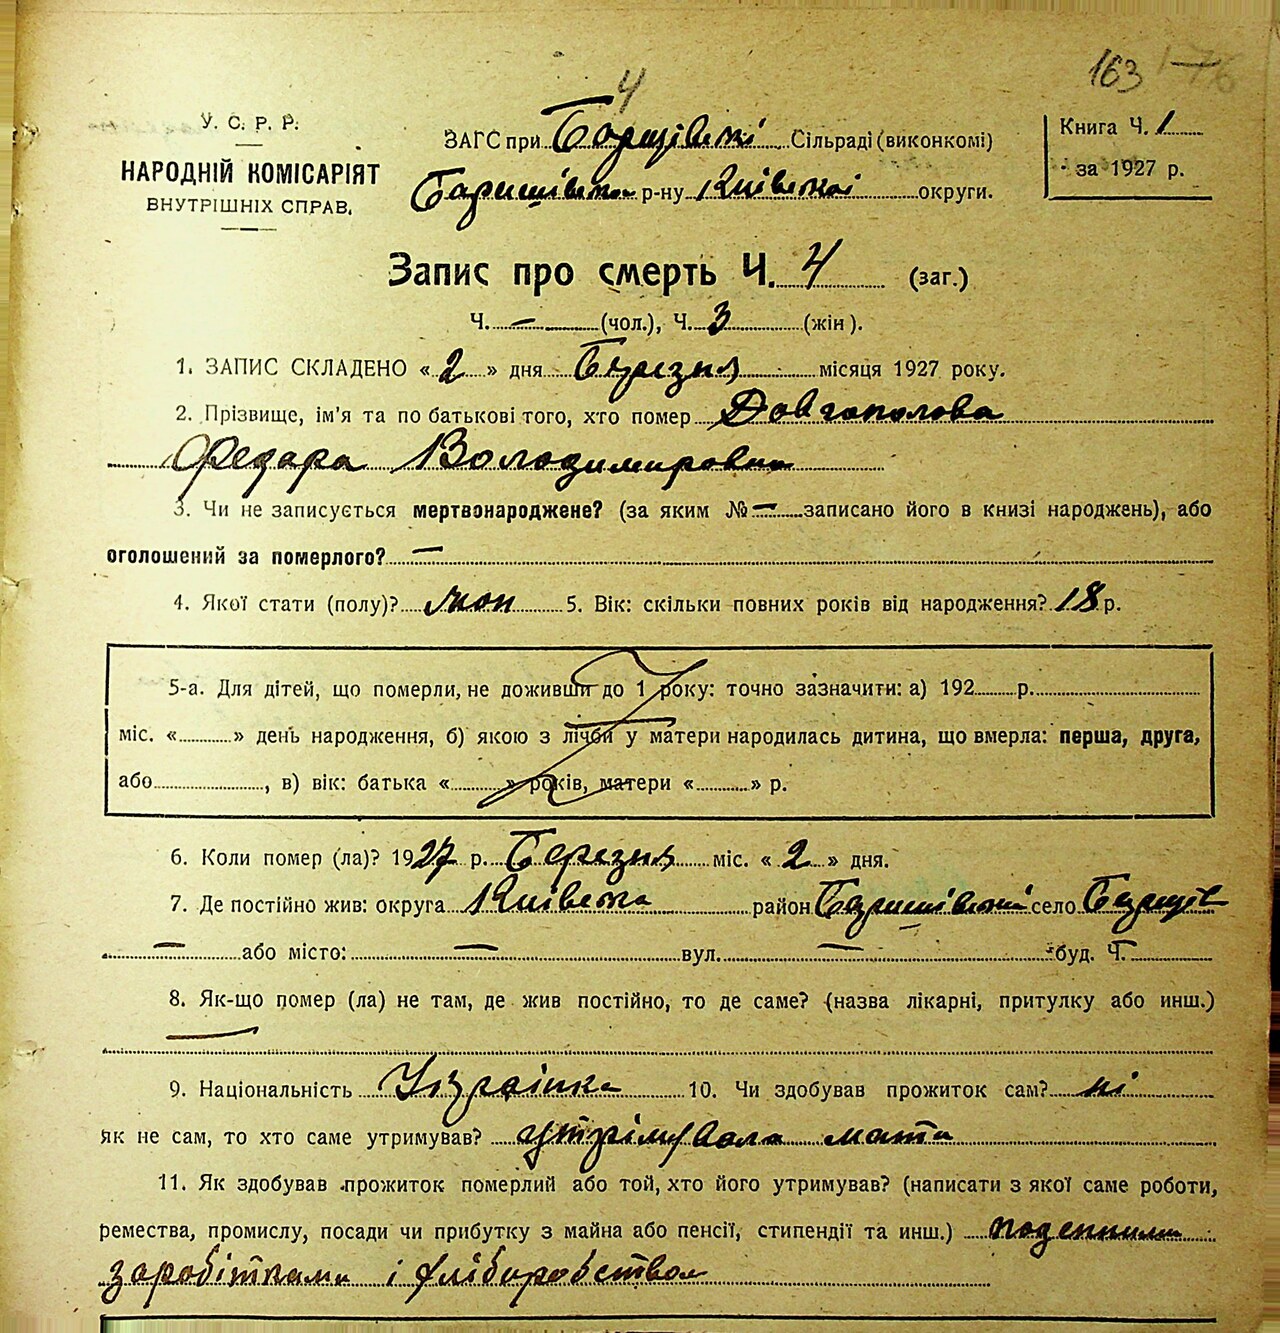 163 176
4
У. С. Р. Р.
НАРОДНІЙ КОМІСАРІЯТ
ВНУТРІШНІХ СПРАВ.
ЗАГС при Борщівські Сільраді (виконкомі)
Баришівськ р-ну Київської округи.
Книга Ч. 1
за 1927 р.
Запис про смерть Ч. 4 (заг.)
Ч. — (чол.), Ч. 3 (жін).
1. ЗАПИС СКЛАДЕНО « 2 » дня Березня місяця 1927 року.
2. Прізвище, ім'я та по батькові того, хто помер Довгополова
Федара Володимировна
3. Чи не записується мертвонароджене? (за яким № — записано його в книзі народжень), або
оголошений за померлого? —
4. Якої стати (полу)? жон 5. Вік: скільки повних років від народження? 18 р.
5-а. Для дітей, що померли, не доживши до 1 року: точно зазначити: а) 192 р.
міс. « » день народження, б) якою з лічби у матери народилась дитина, що вмерла: перша, друга,
або , в) вік: батька « » років, матери « » р.
6. Коли помер (ла)? 1927 р. Березня міс. « 2 » дня.
7. Де постійно жив: округа Київська район Баришівський село Борщів
— або місто: — вул. — буд. Ч.
8. Як-що помер (ла) не там, де жив постійно, то де саме? (назва лікарні, притулку або инш.)
—
9. Національність Українка 10. Чи здобував прожиток сам? ні
Як не сам, то хто саме утримував? утрімувала мати
11. Як здобував прожиток померлий або той, хто його утримував? (написати з якої саме роботи,
ремества, промислу, посади чи прибутку з майна або пенсії, стипендії та инш.) поденними
заробітками і хліборобством